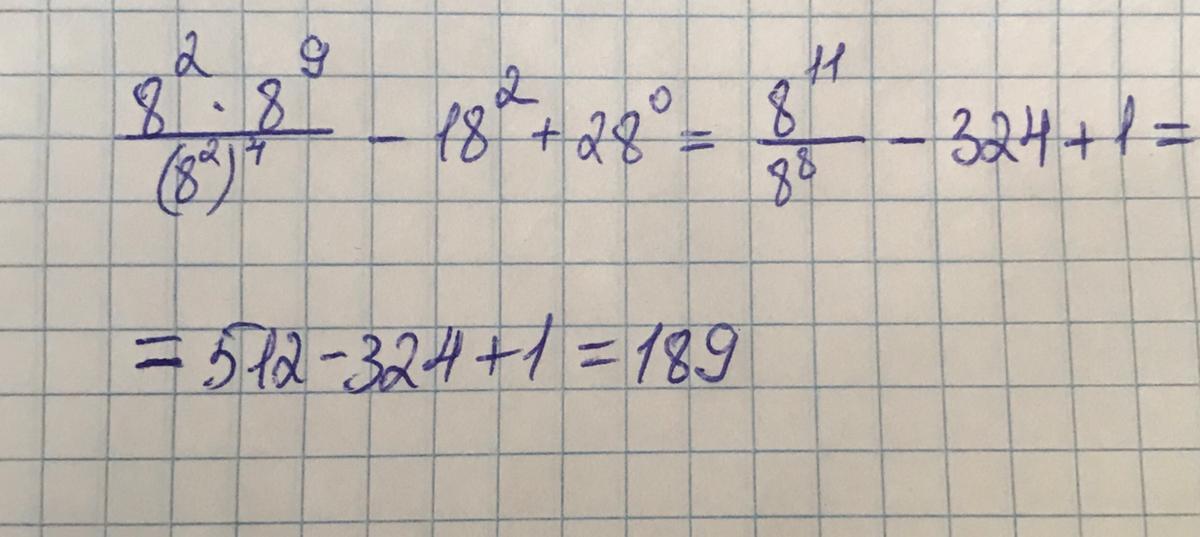 \frac{8^2 \cdot 8^9}{(8^2)^4} - 18^2 + 28^0 = \frac{8^{11}}{8^8} - 324 + 1 =
= 512 - 324 + 1 = 189